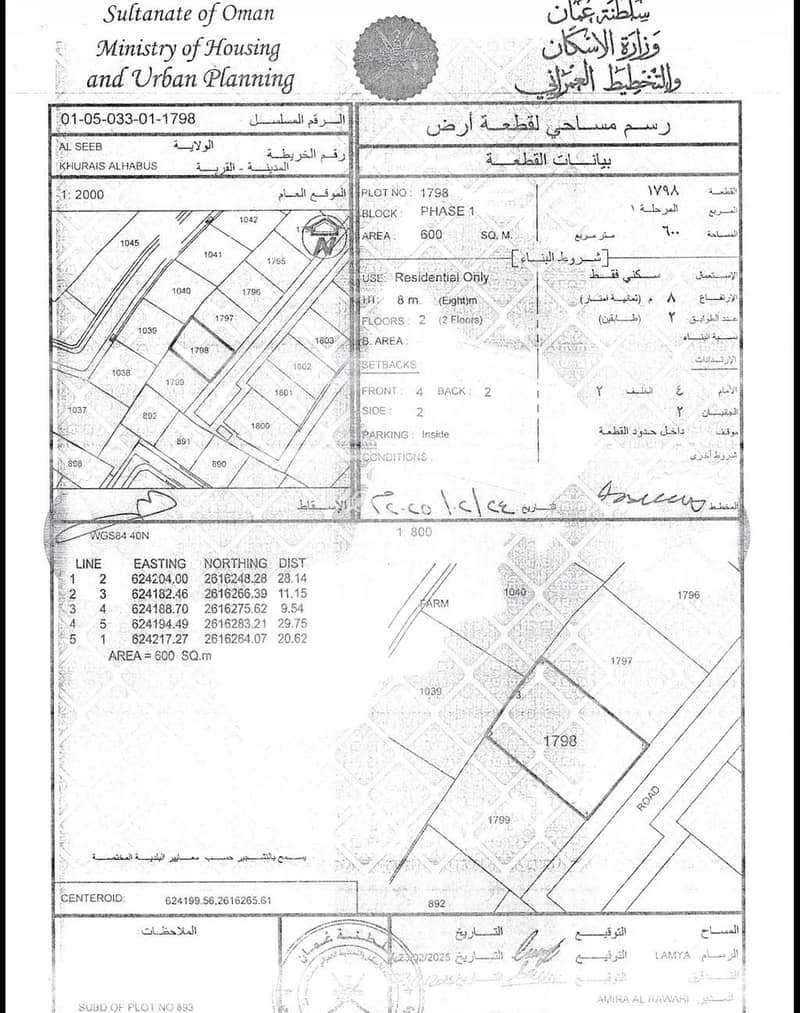 Sultanate of Oman
Ministry of Housing
and Urban Planning
سلطنة عمان
وزارة الإسكان
والتخطيط العمراني
01-05-033-01-1798 الرقم المسلسل
AL SEEB الولاية
رقم الخريطة
KHURAIS ALHABUS المدينة - القرية
1: 2000 الموقع العام
رسم مساحي لقطعة أرض
بيانات القطعة
PLOT NO : 1798
١٧٩٨ القطعة
BLOCK : PHASE 1
المرحلة ١ المربع
AREA : 600 SQ. M.
٦٠٠ متر مربع المساحة
شروط البناء
USE: Residential Only
سكني فقط الإستعمال
HT: 8 m. (Eight)m
٨ م (ثمانية امتار) الإرتفاع
FLOORS : 2 (2 Floors)
٢ (طابقين) عدد الطوابق
B. AREA :
نسبة البناء
SETBACKS
الإرتدادات
FRONT : 4 BACK : 2
الأمام ٤ الخلف ٢
SIDE : 2
الجانبان ٢
PARKING : Inside
موقف داخل حدود القطعة
CONDITIONS :
شروط أخرى
1042
1045
1041
1795
1040
1796
1797
1039
1798
1803
1802
1038
1799
1801
1037
892
1800
891
898
890
N
الإسقاط
التاريخ
المخطط
WGS84 40N
1 800
LINE EASTING NORTHING DIST
1 2 624204.00 2616248.28 28.14
2 3 624182.46 2616266.39 11.15
3 4 624188.70 2616275.62 9.54
4 5 624194.49 2616283.21 29.75
5 1 624217.27 2616264.07 20.62
AREA = 600 SQ.m
FARM
1040
1796
1797
1039
3
1798
1799
ROAD
892
يسمح بالتشجير حسب معايير البلدية المختصة
CENTEROID: 624199.56,2616265.61
الملاحظات
SUBD OF PLOT NO 893
سلطنة عمان
المساح التوقيع التاريخ
الرسام LAMYA التوقيع التاريخ 23/02/2025
التدقيق التوقيع التاريخ
المدير AMIRA AL RAWAHI